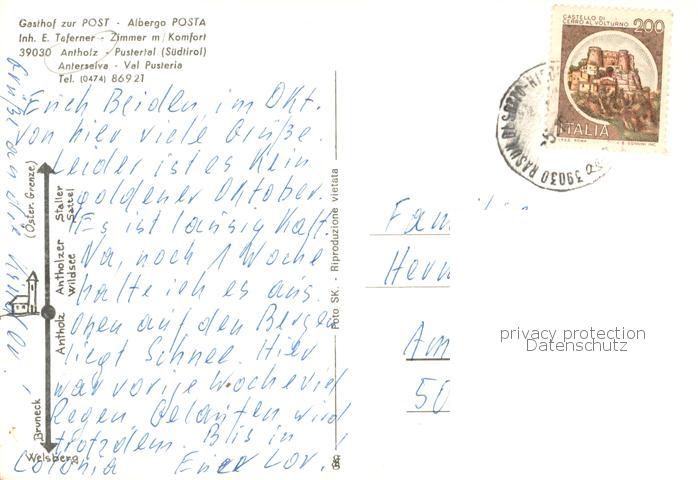 Gasthof zur POST - Albergo POSTA
Inh. E. Taferner - Zimmer m/Komfort
39030 Antholz - Pustertal (Südtirol)
Anterselva - Val Pusteria
Tel. (0474) 86921
Euch Beiden im Okt.
von hier viele Grüße.
Leider ist es kein
goldener Oktober.
Es ist lausig kalt.
Na, noch 1 Woche
halte ich es aus.
Oben auf den Bergen
liegt Schnee. Hier
war vorige Woche viel
Regen. Gelaufen wird
trotzdem. Bis in
Colonia Euer
Grüße an die
(Öster. Grenze)
Staller Sattel
Antholzer Wildsee
Antholz
Bruneck
Welsberg
Foto SK. - Riproduzione vietata
CASTELLO DI
CERRO AL VOLTURNO
200
ITALIA
39030 RASUN DI SOTTO
Fam
Herm
Am
50
privacy protection
Datenschutz